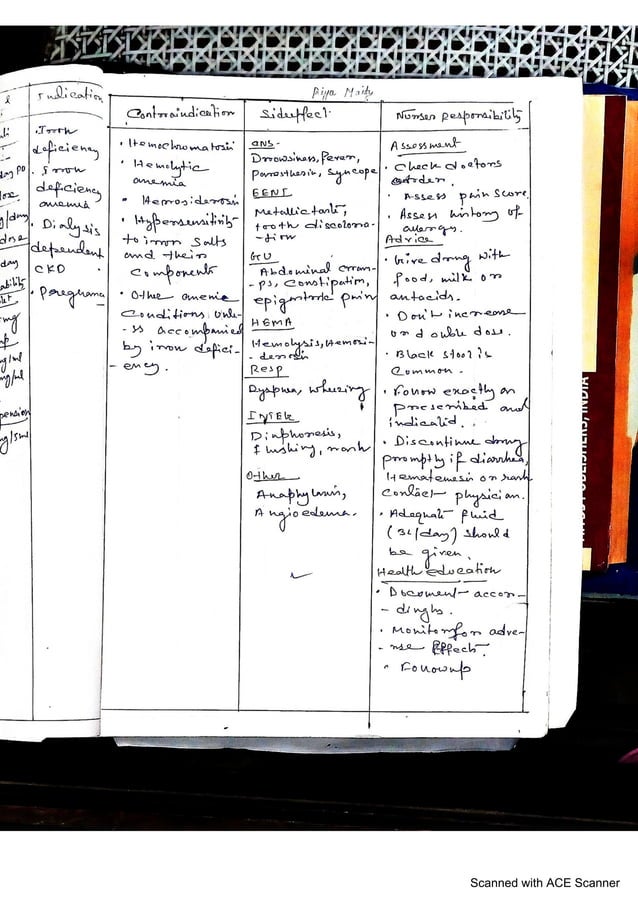 Riya Maity
Indication
. Iron
deficiency
. Iron
deficiency
anemia
. Dialysis
dependent
CKD
Contraindication
. Hemochromatosis
. Hemolytic
anemia
. Hemosiderosis
. Hypersensitivity
to iron salts
and their
components
. Othe anemic
conditions unle-
-ss accompanied
by iron defici-
-ency.
Sideeffect.
CNS-
Drowsiness, Fever,
Paresthesia, Syncope
EENT
Metallic taste,
tooth discolora-
-tion
GU
Abdominal cram-
-ps, Constipation,
epigastric pain
HEMA
Hemolysis, Hemosi-
-derosis
Resp
Dyspnea, wheezing
INTEG
Diaphoresis,
flushing, rash
Other
Anaphylaxis,
Angioedema.
Nurses Responsibility
Assessment
. Check doctors
order.
. Assess pain score
. Assess history of
allergy.
Advice
. Give drug with
food, milk or
antacids.
. Don't increase
or double dose.
. Black stool is
common.
. Follow exactly as
prescribed and
indicated.
. Discontinue drug
promptly if diarrhea,
Hematemesis or rash
contact physician.
. Adequate fluid
(3L/day) should
be given.
Health education
. Document accor-
-dingly.
. Monitor for adve-
-rse Effect.
. Followup
PUBLISHERS, INDIA
Scanned with ACE Scanner